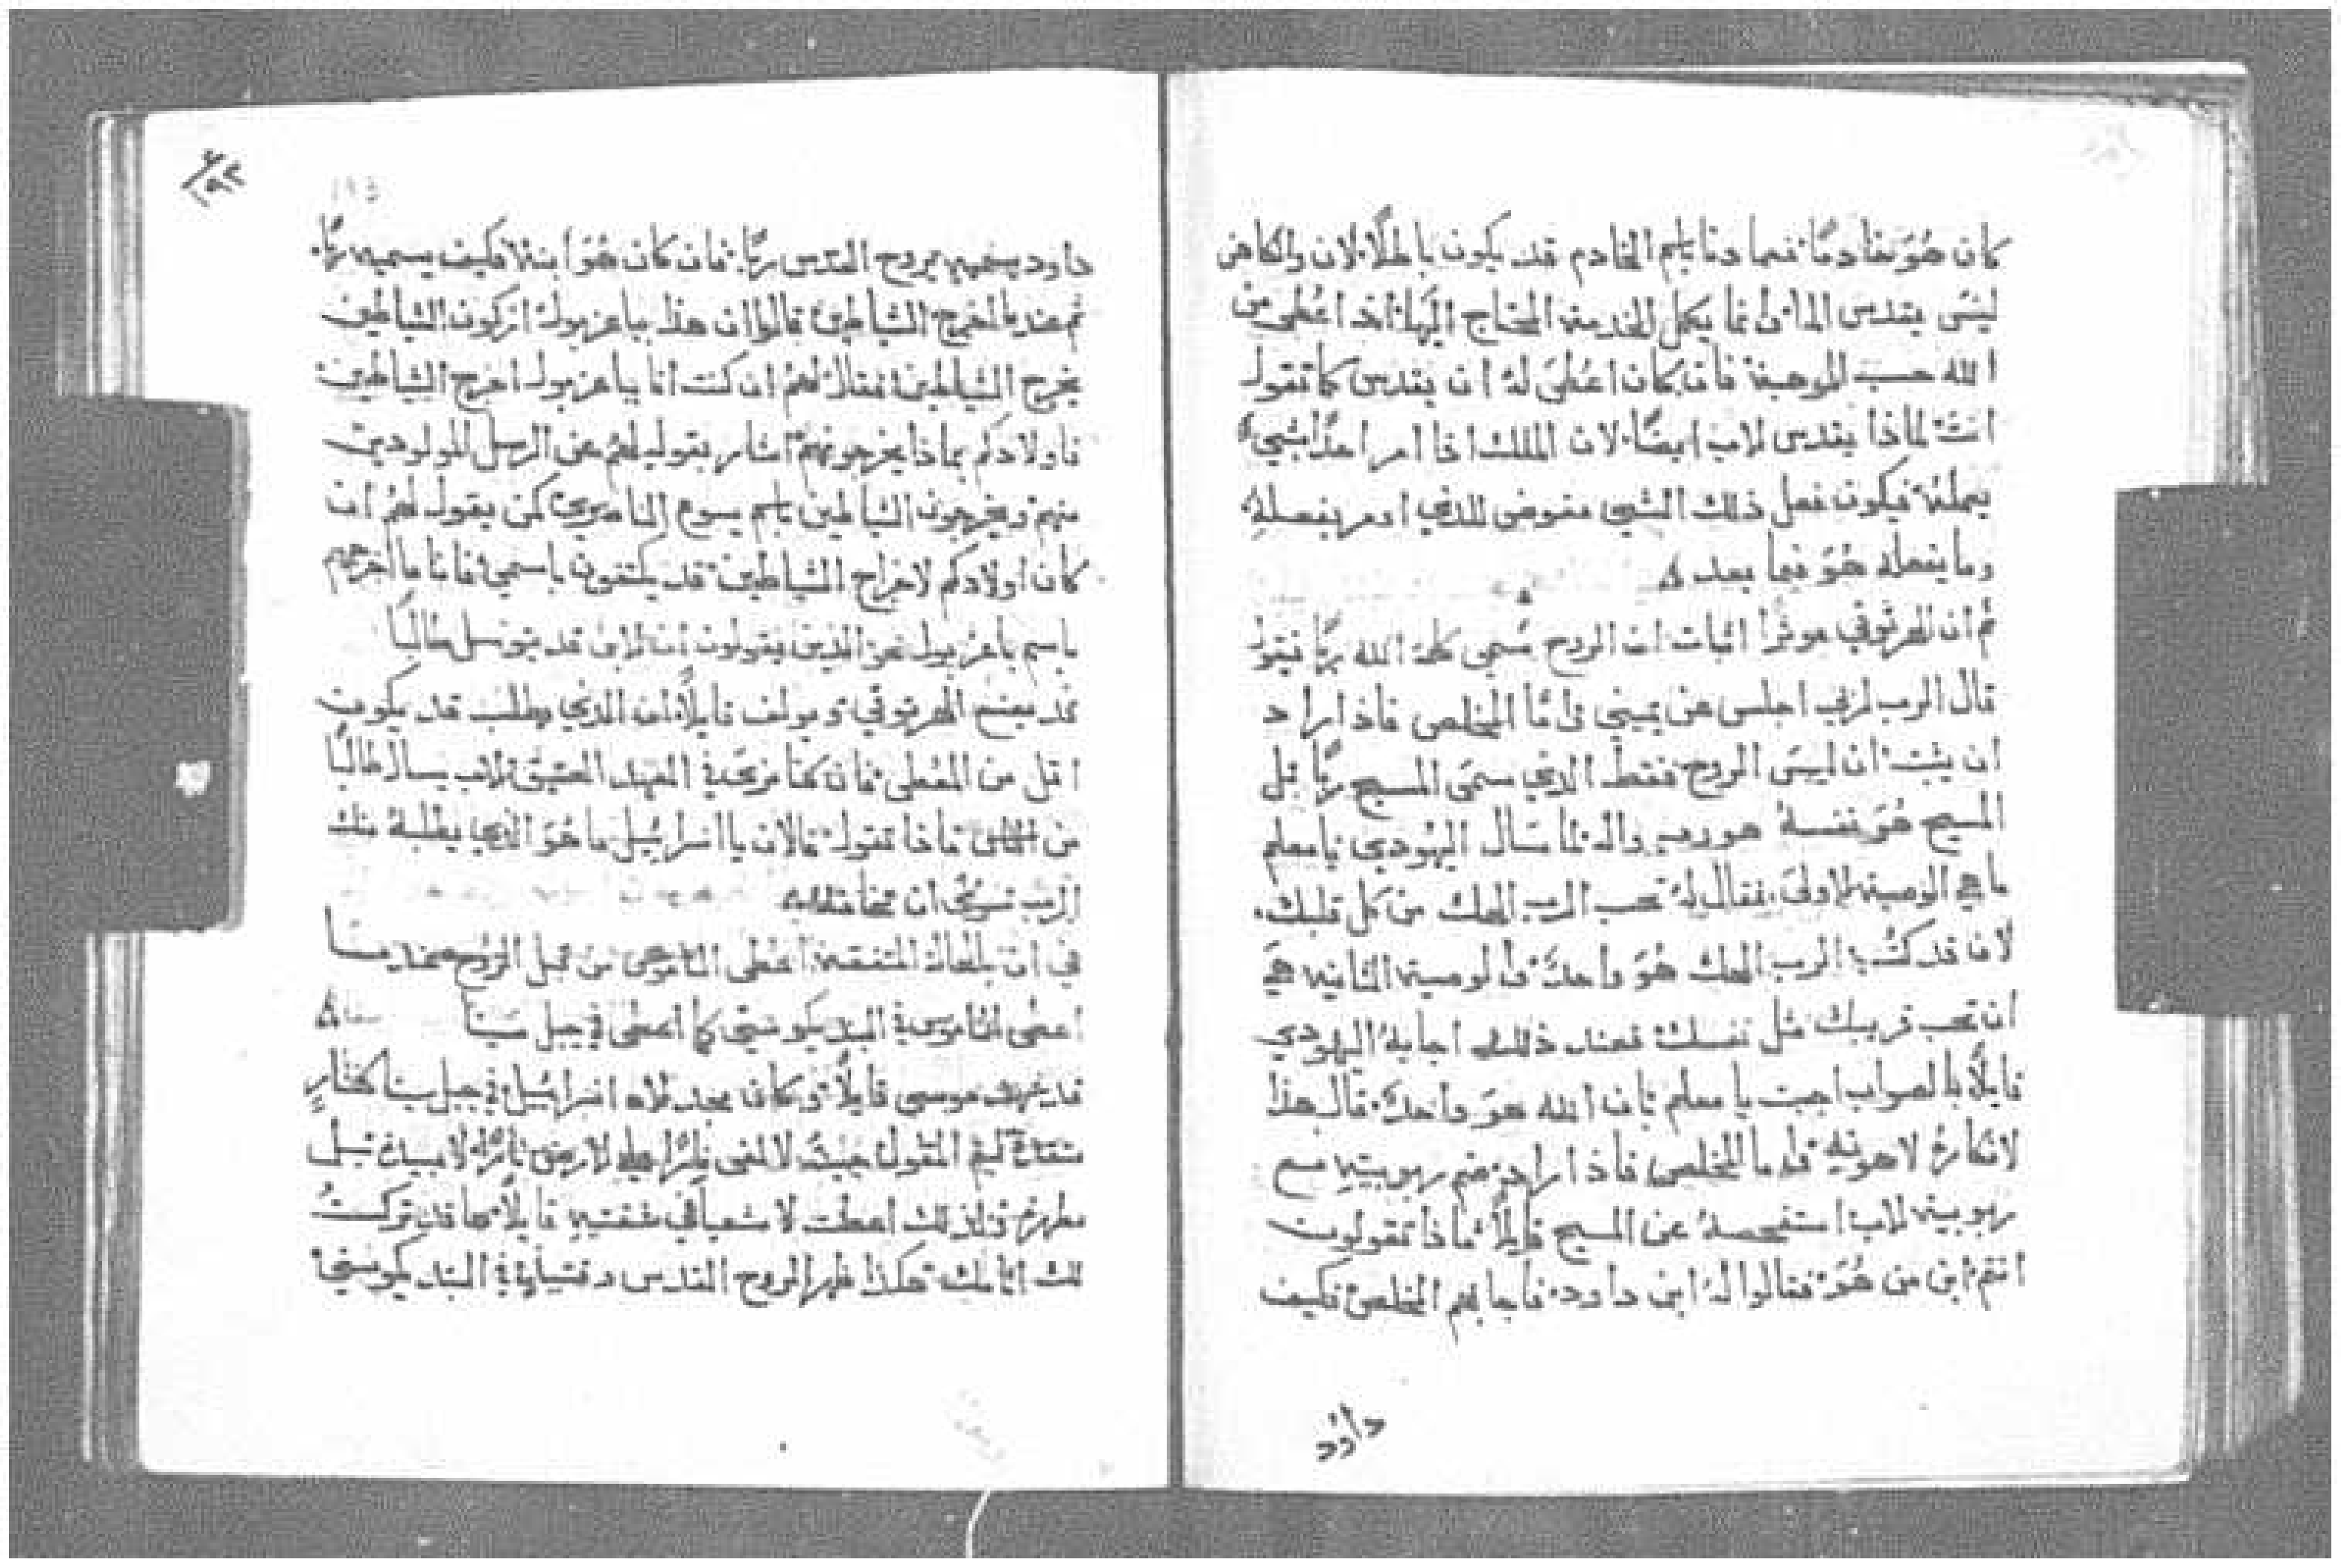 كان هُوَ خادمًا. فما دنا باسم الخادم قد يكون باطلًا. لان والكاهن
ليسَ يقدس الما وانما يكمل الخدمة المحتاج اليها اذ اعطى من
الله حسب الموهبة فان كان اعطىَ لهُ ان يقدس كما تقول
انت لماذا يقدس الاب ايضًا. لان الملك اذا امر احدًا بشي
يعملهُ فيكون فعل ذلك الشي مفوض للذي اومر بفعلهِ
وما يفعله هُوَ فيما بعد
ثم ان الهرتوقي موثرًا اثبات ان الروح سُمي كلمة الله ربًا فيقول
قال الرب لربي اجلس عن يميني واما المخلص فاذ اراد
ان يثبت ان ليسَ الروح فقط الذي سمىَ المسيح ربًا بل
المسيح هُوَ نفسهُ هو رب واله لما سال اليهودي يا معلم
ما هي الوصية الاولىَ. فقال لهُ تحب الرب الهك من كل قلبك.
لان قد كتب الرب الهك هُوَ واحدٌ والوصية الثانيه هيَ
ان تحب قريبك مثل نفسك فعند ذلك اجابهُ اليهودي
قايلًا بالصواب اجبت يا معلم بان الله هوَ واحدٌ. قال هذا
لانكارهُ لاهوتيه قدما المخلص فاذ اراد ضم ربوبيتهِ مع
ربوبية الاب استفحصهُ عن المسيح قايلًا ماذا تقولون
انتم ابن من هُوَ فقالوا لهُ ابن داود. فاجابهم المخلص فكيف
داود
١٩٣
داود يسميهِ بروح القدس ربًا. فان كان هُوَ ابنهُ فكيف يسميهِ ربًا.
ثم عندما اخرج الشياطين قالوا ان هذا بباعزبول اركون الشياطين
يخرج الشياطين فقال لهُم ان كنت انا بباعزبول اخرج الشياطين
فاولادكم بماذا يخرجونهم اشار بقوله لهُم عن الرسل المولودين
منهم ويخرجون الشياطين باسم يسوع الناصري كمن يقول لهُم ان
كان اولادكم لاخراج الشياطين قد يكتفون باسمي فانا ما اخرجهم
باسم باعزبول نحن الذين يقولون ان الابن قد يتوسل طالبًا
قد يضع الهرتوقي ويولف قايلًا. ان الذي يطلب قد يكون
اقل من المعطى فان كنا نرىَ في العهد العتيق الاب يسال طالبًا
من الناس فماذا تقول فالان يا اسراييل ما هُوَ الذي يطلبهُ منك
الرب سوىَ ان تخافه
في ان بالحال المتفقة اعطى الناموس من قبل الروح عندما
اعطى الناموس في البنديكوستي كما اعطى في جبل سينا
قد شهد موسى قايلًا وكان مجد الاله اسراييل في جبل سينا كنار
متقدة ليتم المقول جيت لالقى نارًا على الارض نارًا لا مبيدة بل
مطهرة ولذلك اعطت لاشعيا في شفتيهِ قايلًا ها قد تركت
لك اثامك هكذا ظهر الروح القدس وقتيذٍ في البنديكوستي